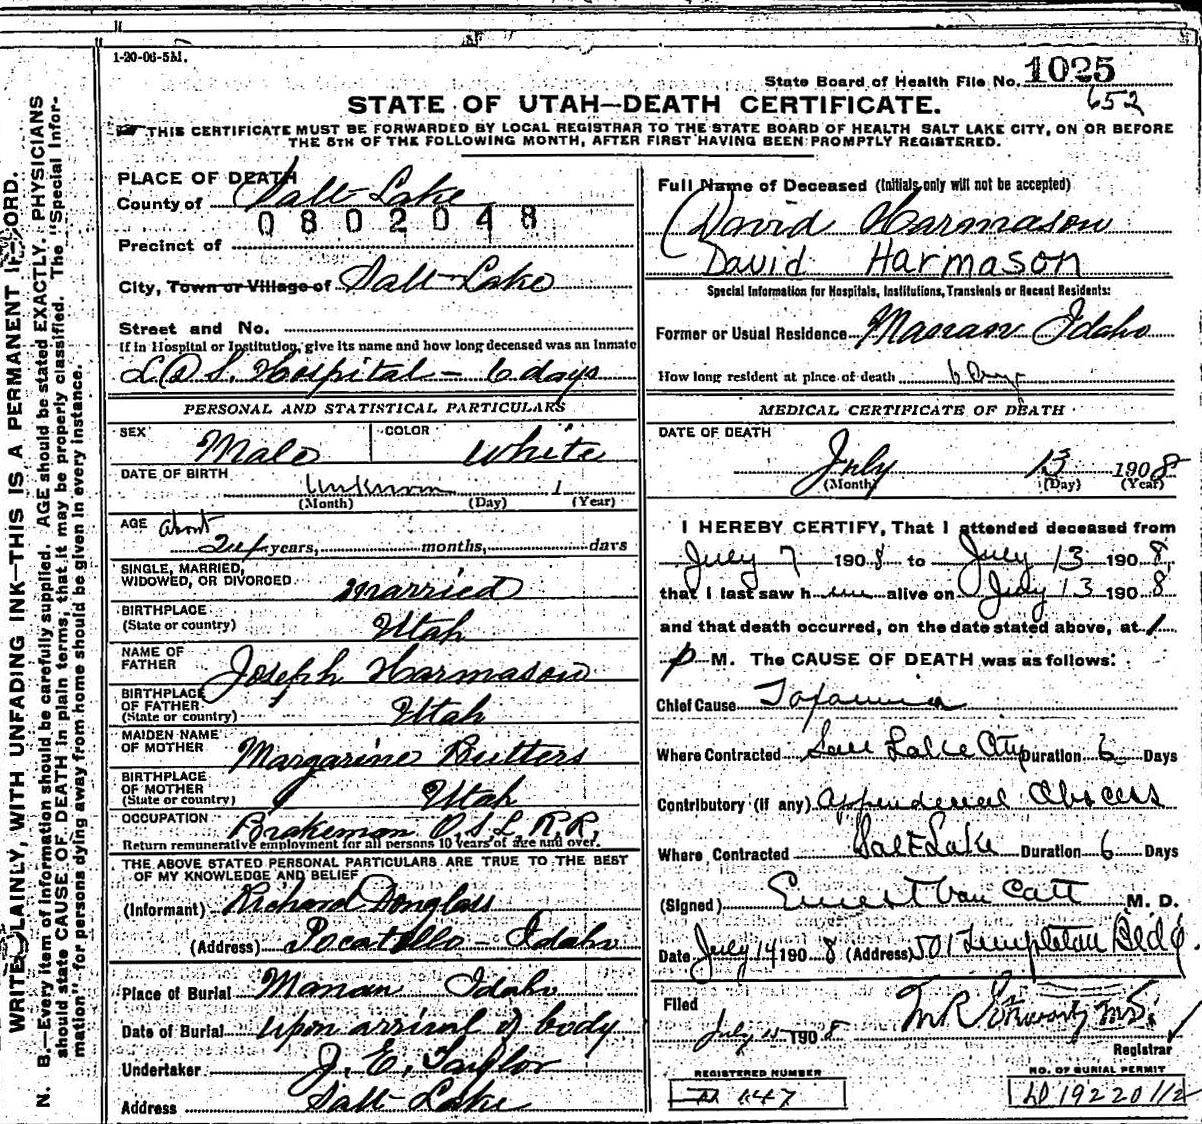 1-20-06-5M.
State Board of Health File No. 1025
652
STATE OF UTAH—DEATH CERTIFICATE.
THIS CERTIFICATE MUST BE FORWARDED BY LOCAL REGISTRAR TO THE STATE BOARD OF HEALTH SALT LAKE CITY, ON OR BEFORE
THE 5TH OF THE FOLLOWING MONTH, AFTER FIRST HAVING BEEN PROMPTLY REGISTERED.
WRITE PLAINLY, WITH UNFADING INK—THIS IS A PERMANENT RECORD.
N. B.—Every item of information should be carefully supplied. AGE should be stated EXACTLY. PHYSICIANS
should state CAUSE OF DEATH in plain terms, that it may be properly classified. The "Special Infor-
mation" for persons dying away from home should be given in every instance.
PLACE OF DEATH
County of Salt Lake
0802048
Precinct of
City, Town or Village of Salt Lake
Street and No.
If in Hospital or Institution, give its name and how long deceased was an Inmate
L.D.S. Hospital - 6 days
PERSONAL AND STATISTICAL PARTICULARS
SEX Male COLOR White
DATE OF BIRTH Unknown 1
(Month) (Day) (Year)
AGE About
24 years, months, days
SINGLE, MARRIED,
WIDOWED, OR DIVORCED Married
BIRTHPLACE
(State or country) Utah
NAME OF
FATHER Joseph Harmason
BIRTHPLACE
OF FATHER
(State or country) Utah
MAIDEN NAME
OF MOTHER Margarine Butters
BIRTHPLACE
OF MOTHER
(State or country) Utah
OCCUPATION Brakeman O.S.L.R.R.
Return remunerative employment for all persons 10 years of age and over.
THE ABOVE STATED PERSONAL PARTICULARS ARE TRUE TO THE BEST
OF MY KNOWLEDGE AND BELIEF
(Informant) Richard Douglass
(Address) Pocatello - Idaho
Place of Burial Marian Idaho
Date of Burial upon arrival of body
Undertaker J. E. Taylor
Address Salt Lake
Full Name of Deceased (Initials only will not be accepted)
David Harmason
David Harmason
Special Information for Hospitals, Institutions, Transients or Recent Residents:
Former or Usual Residence Idaho
How long resident at place of death 6 Days
MEDICAL CERTIFICATE OF DEATH
DATE OF DEATH
July 13 1908
(Month) (Day) (Year)
I HEREBY CERTIFY, That I attended deceased from
July 7 1908 to July 13 1908,
that I last saw him alive on July 13 1908
and that death occurred, on the date stated above, at 1
P M. The CAUSE OF DEATH was as follows:
Chief Cause Toxaemia
Where Contracted Salt Lake City Duration 6 Days
Contributory (if any) Appendecial Abscess
Where Contracted Salt Lake Duration 6 Days
(Signed) Ernest Van Cott M. D.
Date July 14 1908 (Address) 501 Templeton Bldg.
Filed
July 1908
Registrar
REGISTERED NUMBER
147
NO. OF BURIAL PERMIT